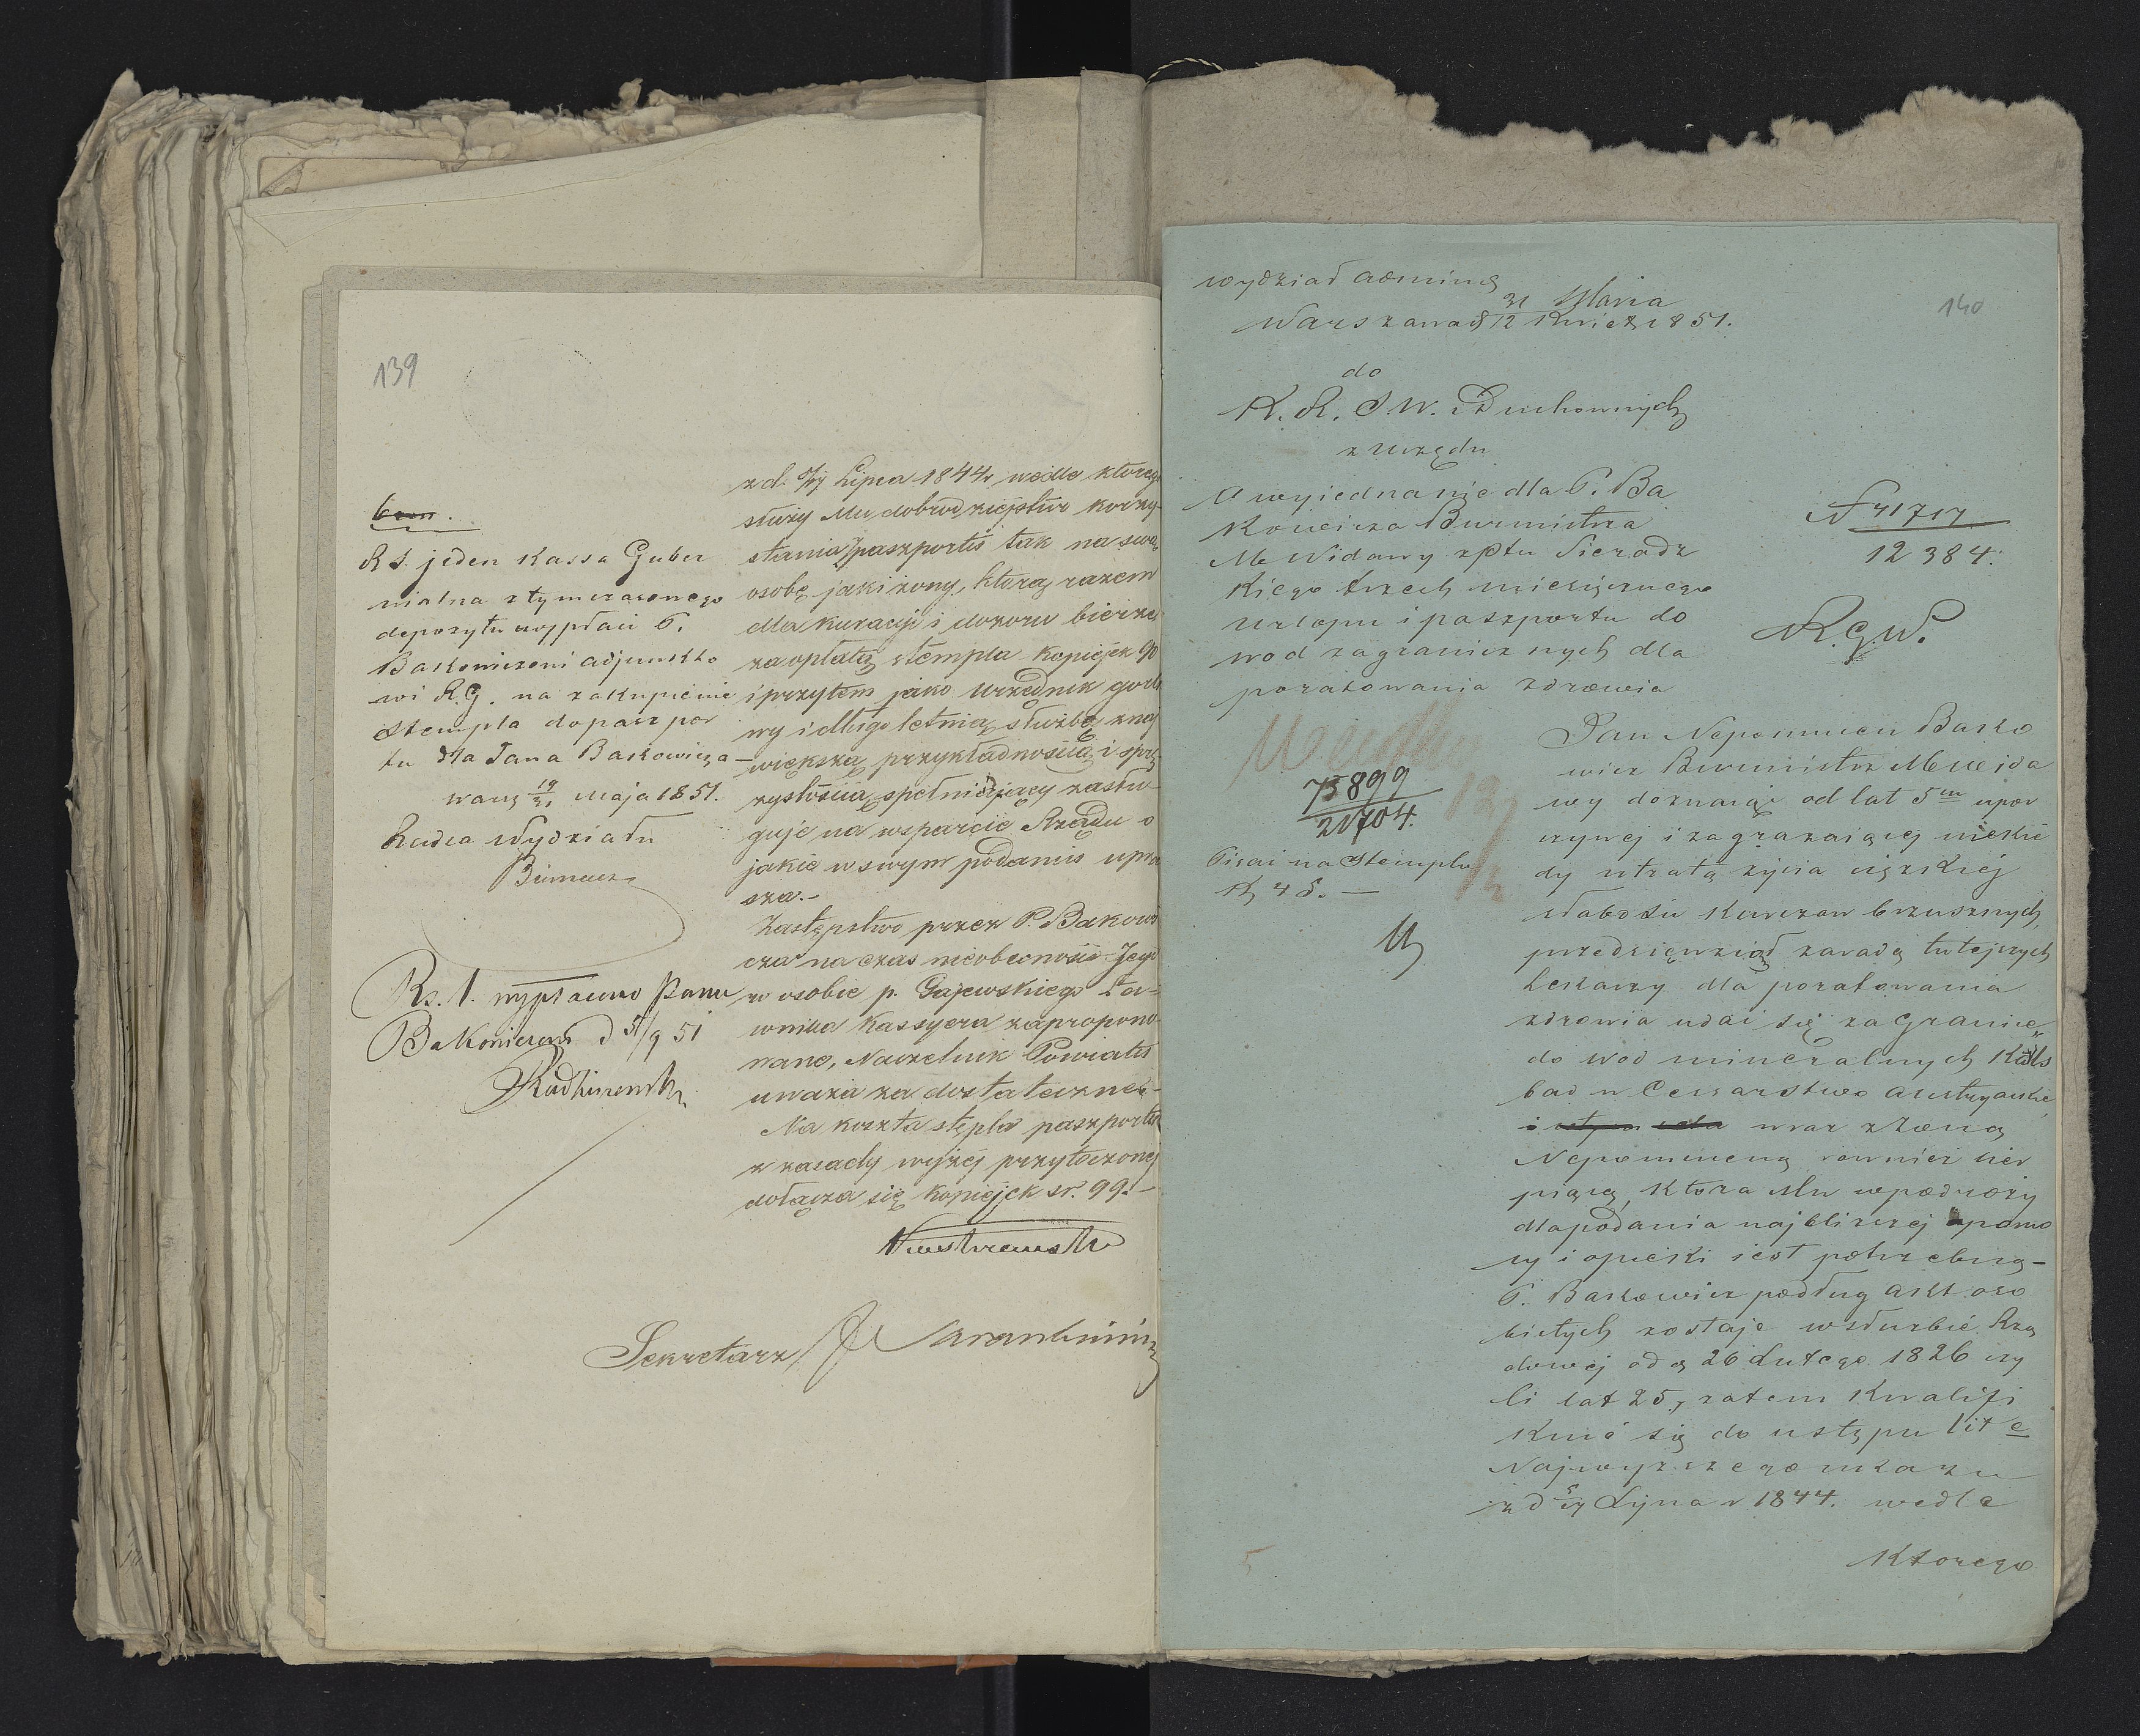 139
Rs. jeden Kassa Guber
nialna z tymczasowego
depozytu wypłaci P.
Bakowiczowi adjunkto
wi R.G. na zakupienie
stempla do paszpor
tu dla Jana Bakowicza
19/31 Maja 1851.
Radca Wydziału
Rs. 1. wypłacono Panu
z d. Lipca 1844 r. wedle którego
służy Mu dobrodziejstwo korzy-
stania paszportu tak na swą
osobę jak i żony, którą razem
dla kuracyi i dozoru bierze
za opłatą stempla kopiejek 90
i przytem jako urzędnik gorli
wy i długo letnią służbę z naj
większą przykładnością i sprę
zystością spełniający zasłu-
guje na wsparcie Rządu o
jakie w swym podaniu upra
sza.-
Zastępstwo przez P. Bakowi
cza na czas nieobecności Jego
w osobie p. Gajewskiego Ła-
wnika Kassyera zapropono-
wano, Naczelnik Powiatu
uważa za dostateczne.-
Na koszta stępla paszportu
z zasady wyżej przytoczonej
dołącza się kopiejek sr. 99.-
Sekretarz
140
Wydział Adminis
31 Marca
Warszawa d 12 Kwiet 1851.
do
K. R. S. W. i Duchownych
z Urzędu
O wyiednanie dla P. Ba
kowicza Burmistrza
M. Widawy z Ptu Sieradz
kiego trzech miesięcznego
urlopu i paszportu do
wod zagranicznych dla
poratowania zdrowia
N 41717
12 384.
R.G.W.
75899
21704.
Pisać na Stemplu
Jan Nepomucen Bako
wicz Burmistrz M. Wida
wy doznając od lat 5ciu upor
czywej i zagrażającej niekie
dy utratą życia ciężkiej
słabości kurczow brzusznych,
przedsięwziął za radą tutejszych
Lekarzy dla poratowania
zdrowia udać się za Granicę
do wod mineralnych Kals
bad w Cesarstwo Austryackie
wraz z Żoną
Nepomuceną rownież cier
piącą, ktora Mu w podroży
dla podania najbliższej pomo
cy i opieki jest potrzebną-
P. Bakowicz podług akt oso
bistych zostaje w służbie Rzą
dowej od d 26 Lutego 1826 czy
li lat 25, zatem kwalifi
kuie się do ustępu lit c
Najwyższego ukazu
z d Lipca r 1844. wedle
ktorego
5